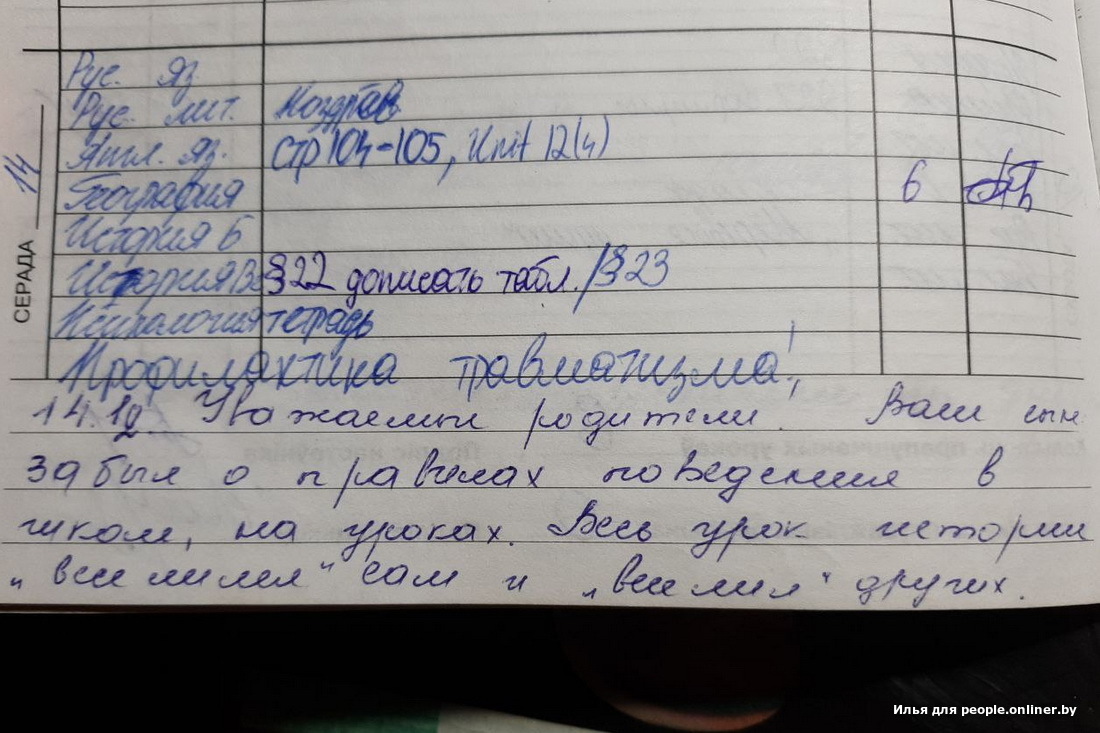 СЕРАДА 14
Рус. яз.
Рус. лит. Ноздрёв
Англ. яз. стр 104-105, Unit 12(4)
География 6
История Б
История Вс §22 дописать табл. /§23
Психология тетрадь
Профилактика травматизма!
14.12. Уважаемые родители! Ваш сын
забыл о правилах поведения в
школе, на уроках. Весь урок истории
"веселился" сам и "веселил" других.
Илья для people.onliner.by